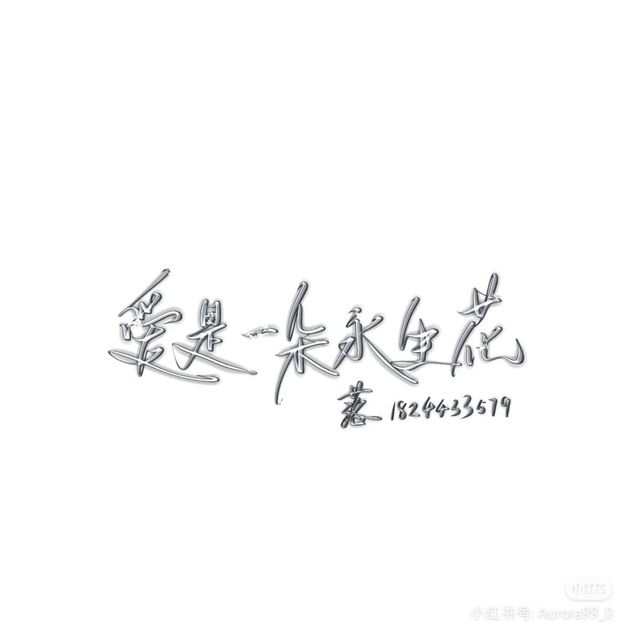 愛是一朵永生花
1824433579
小红书
小红书号: Aurora99_0